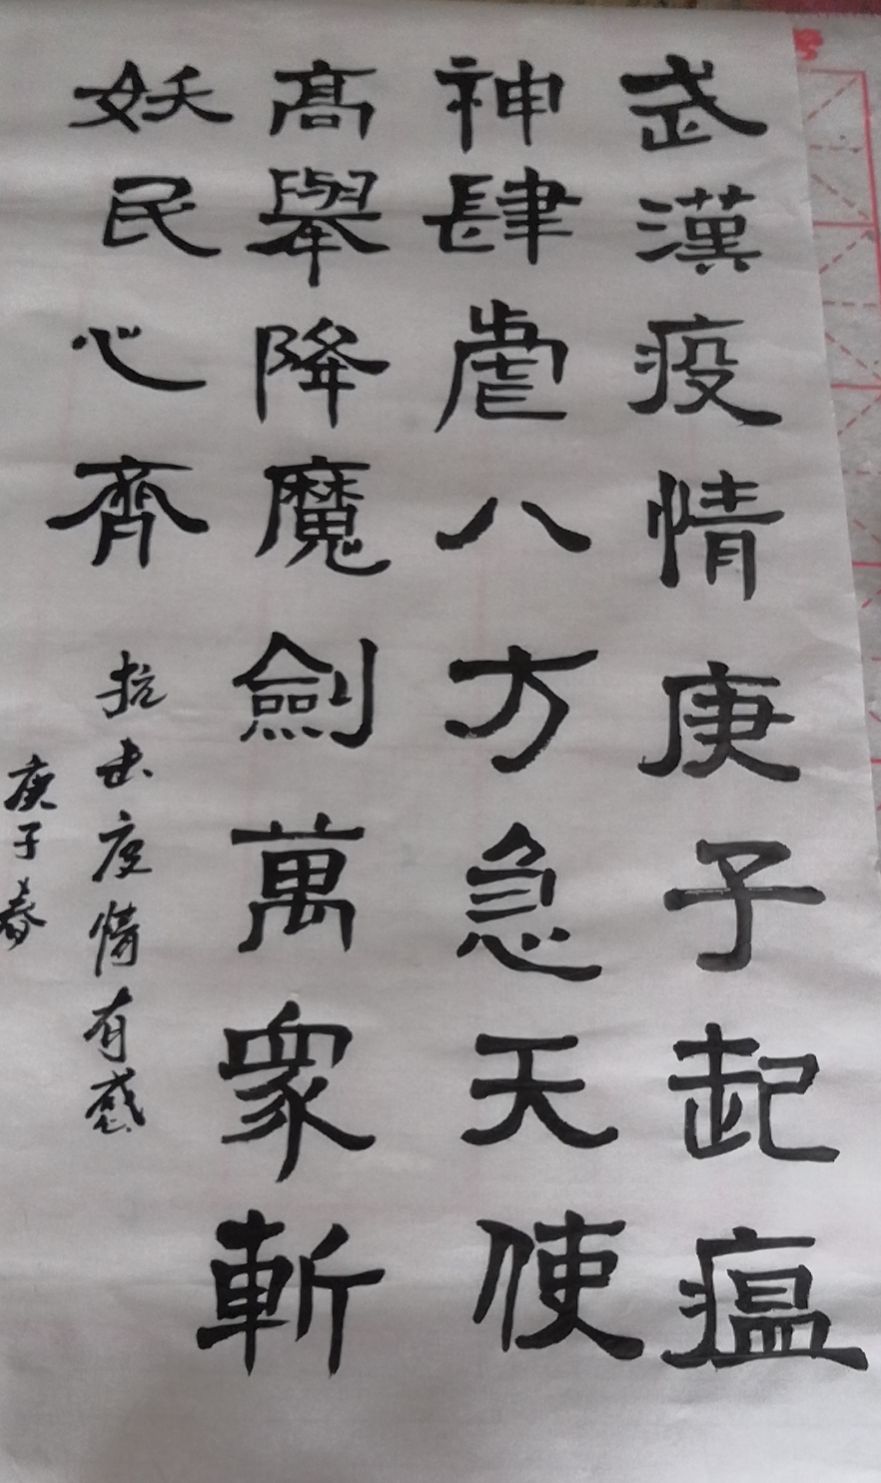 武漢疫情庚子起瘟
神肆虐八方急天使
高舉降魔劍萬衆斬
妖民心齊
抗击疫情有感
庚子春